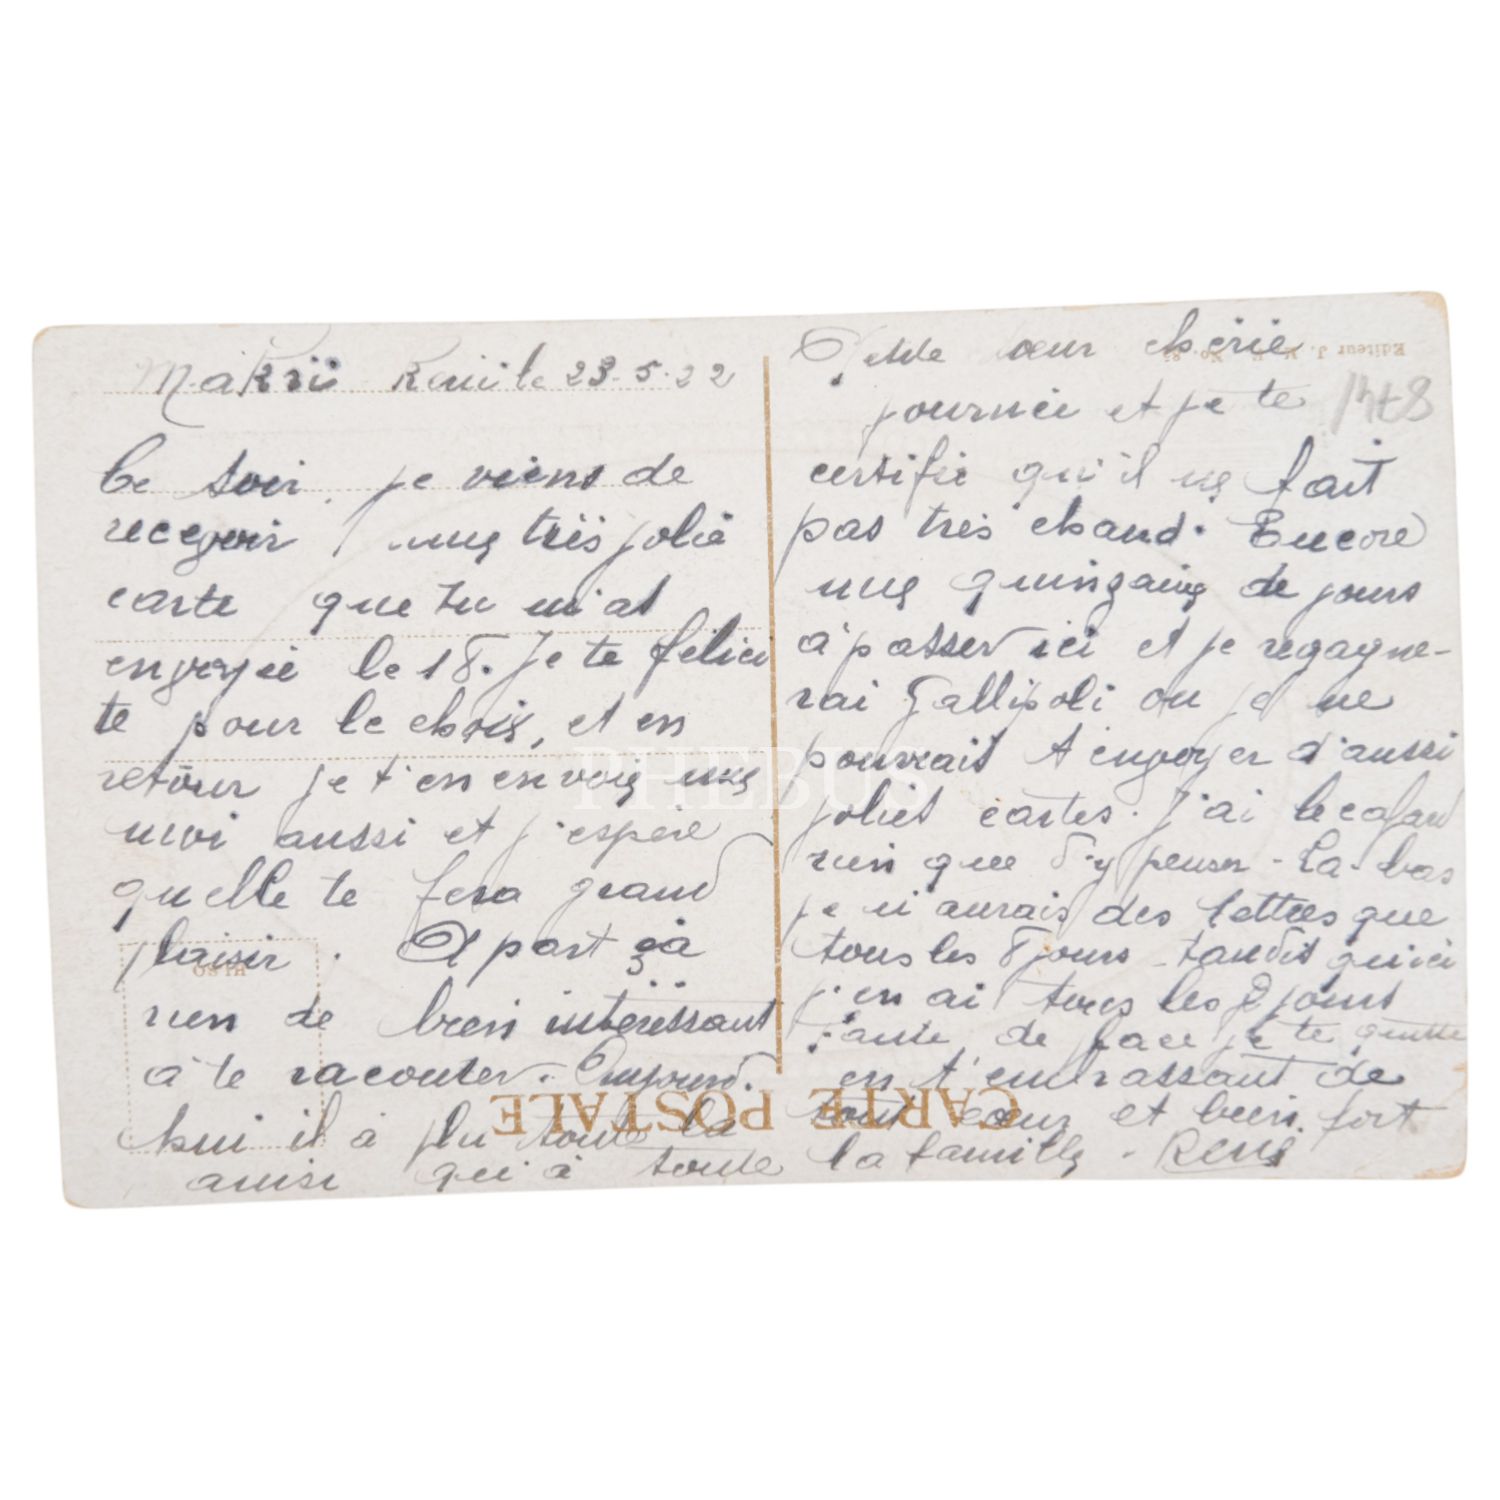 Makri Keuilé 23-5-22
Petite sœur chérie
Ce soir, je viens de
recevoir une très jolie
carte que tu m'as
envoyée le 18. Je te félici
te pour le choix, et en
retour je t'en envoie une
moi aussi et j'espère
quelle te fera grand
plaisir. A part ça
rien de bien intéressant
à te raconter. Aujourd'
hui il a plu toute la
ainsi qu'à toute
journée et je te
certifie qu'il ne fait
pas très chaud. Encore
une quinzaine de jours
à passer ici et je regagne-
rai Gallipoli ou je ne
pourrait t'envoyer d'aussi
jolies cartes. J'ai le cafard
rien que d'y penser. La-bas
je n'aurais des lettres que
tous les 8 jours tandis qu'ici
j'en ai tous les 2 jours
Faute de place je te quitte
en t'embrassant de
tout cœur et bien fort
la famille. René
1478
Editeur J.
CARTE POSTALE
PHEBUS